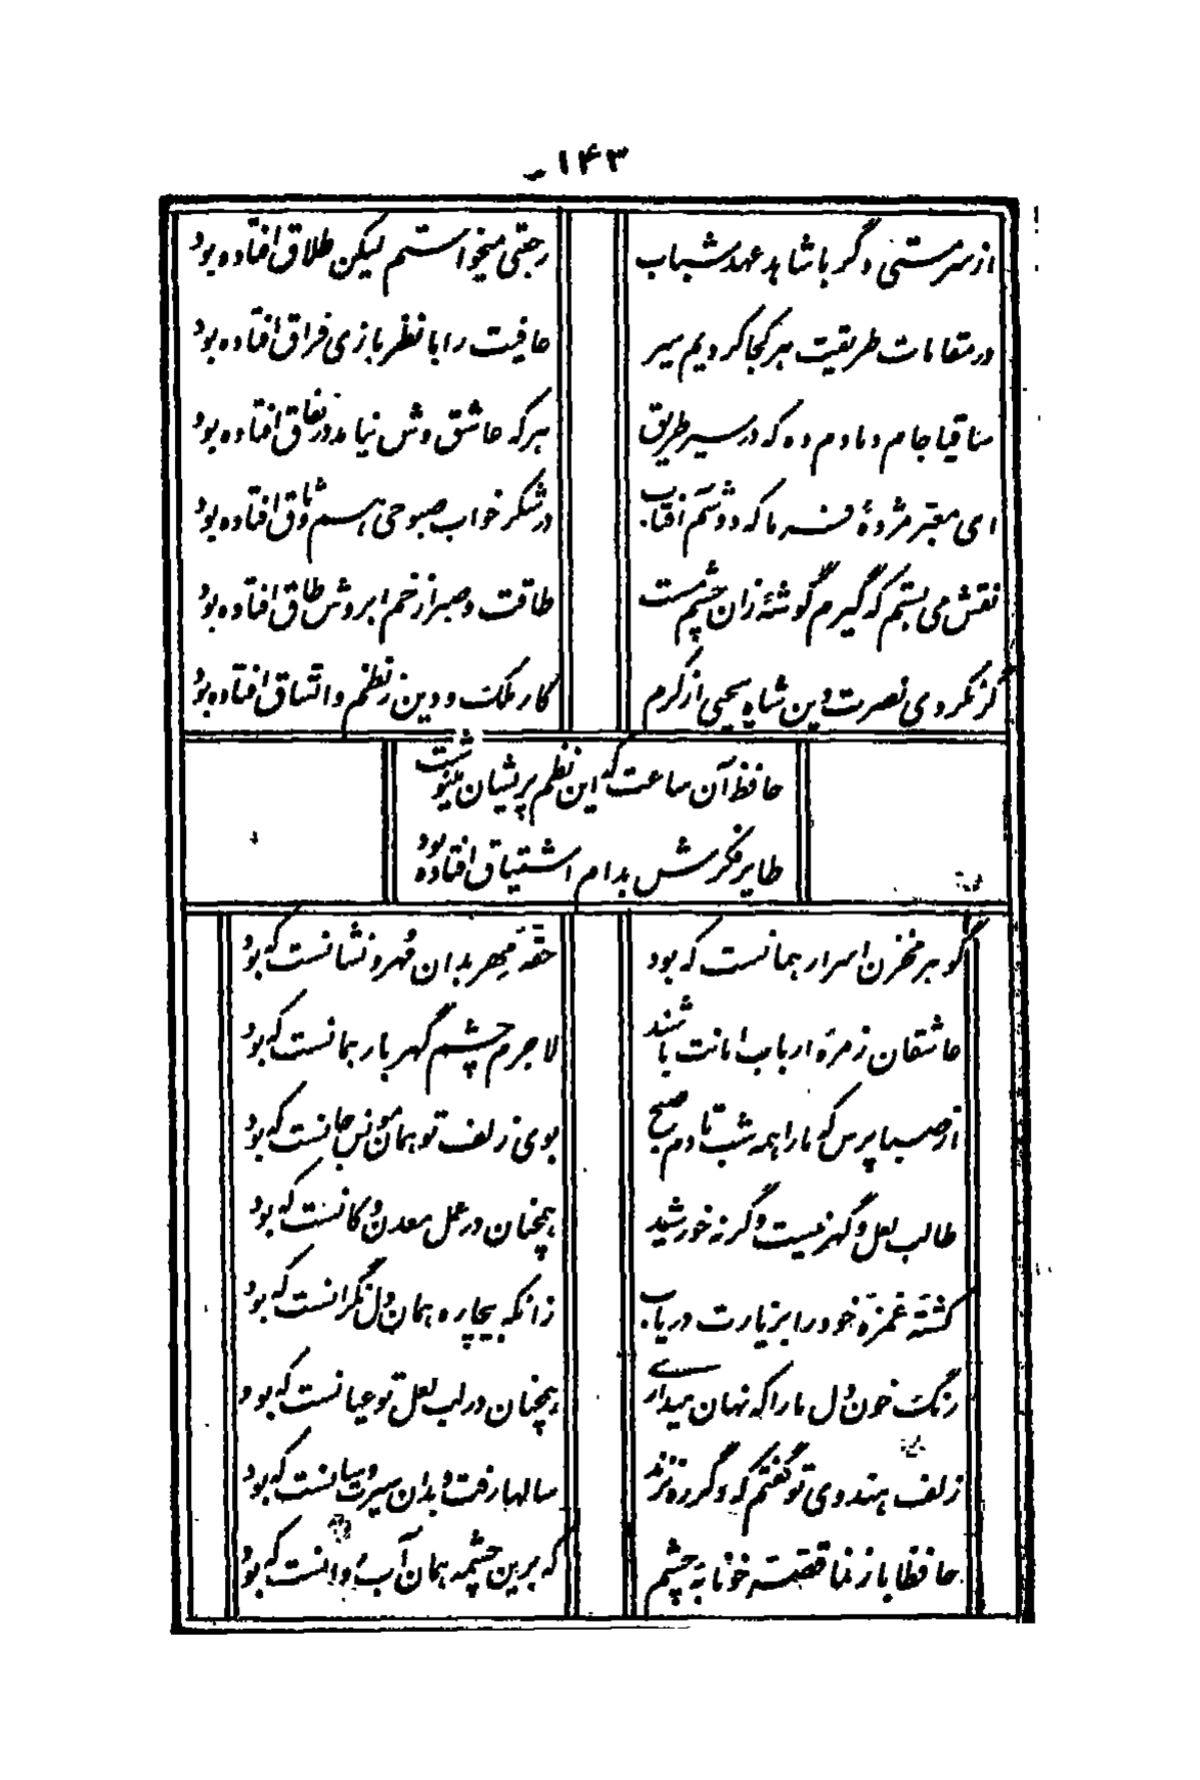 ۱۴۳
از سر مستی دگر با شاهد عهد شباب
رجعتی میخواستم لیکن طلاق افتاده بود
در مقامات طریقت هر کجا کردیم سیر
عافیت را با نظربازی فراق افتاده بود
ساقیا جام دمادم ده که در سیر طریق
هر که عاشق وش نیامد در نفاق افتاده بود
ای معبر مژدهٔ فرما که دوشم آفتاب
در شکر خواب صبوحی هم وثاق افتاده بود
نقش می بستم که گیرم گوشهٔ زان چشم مست
طاقت و صبر از خم ابروش طاق افتاده بود
گر نکردی نصرت دین شاه یحیی از کرم
کار ملک و دین ز نظم و اتساق افتاده بود
حافظ آن ساعت که این نظم پریشان مینوشت
طایر فکرش بدام اشتیاق افتاده بود
گوهر مخزن اسرار همانست که بود
حقهٔ مهر بدان مهر و نشانست که بود
عاشقان زمرهٔ ارباب امانت باشند
لاجرم چشم گهربار همانست که بود
از صبا پرس که ما را همه شب تا دم صبح
بوی زلف تو همان مونس جانست که بود
طالب لعل و گهر نیست وگرنه خورشید
همچنان در عمل معدن و کانست که بود
کشتهٔ غمزهٔ خود را بزیارت دریاب
زانکه بیچاره همان دل نگرانست که بود
رنگ خون دل ما را که نهان میداری
همچنان در لب لعل تو عیانست که بود
زلف هندوی تو گفتم که دگر ره نزند
سالها رفت و بدان سیرت و سانست که بود
حافظا باز نما قصهٔ خونابهٔ چشم
که برین چشمه همان آب روانست که بود